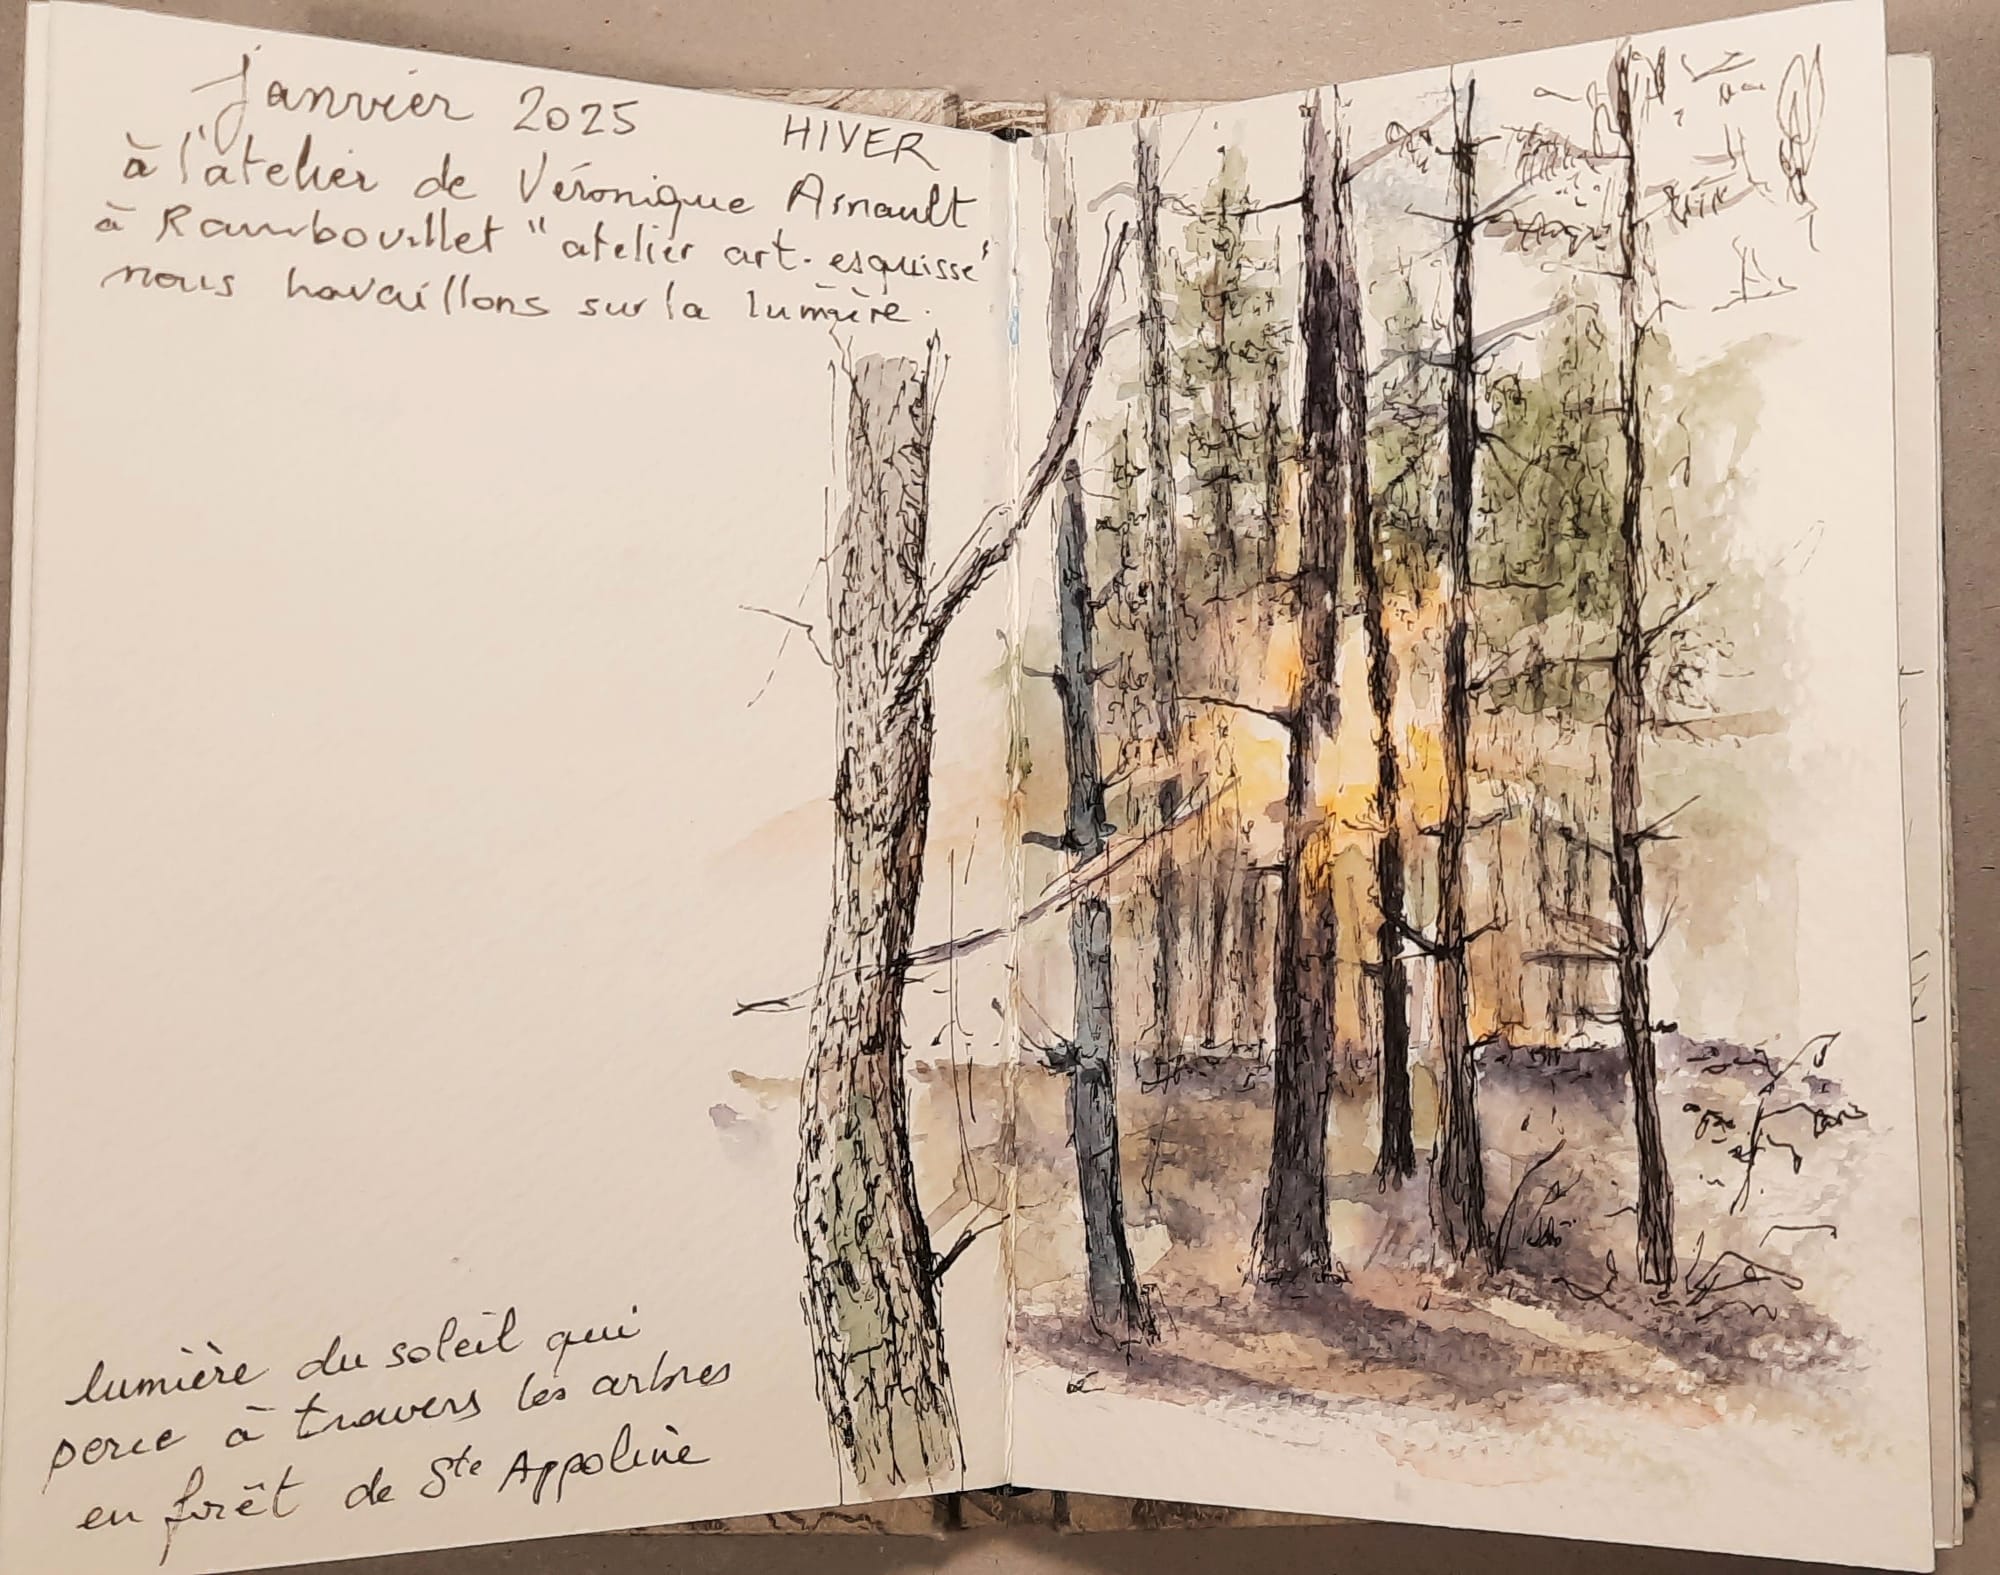 Janvier 2025
HIVER
à l'atelier de Véronique Arnault
à Rambouillet "atelier art-esquisse"
nous travaillons sur la lumière.
lumière du soleil qui
perce à travers les arbres
en forêt de Ste Appoline